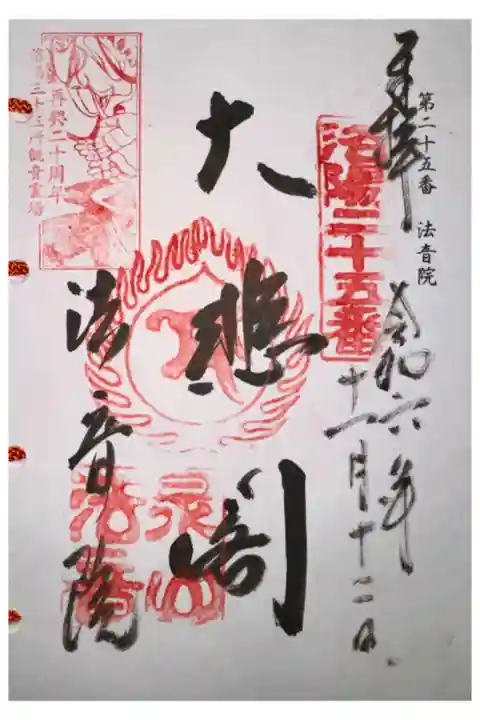 第二十五番 法音院
奉拝
令和六年
十一月十二日
洛陽二十五番
大悲閣
法音院
再興二十周年
洛陽三十三所観音霊場
泉山
法音